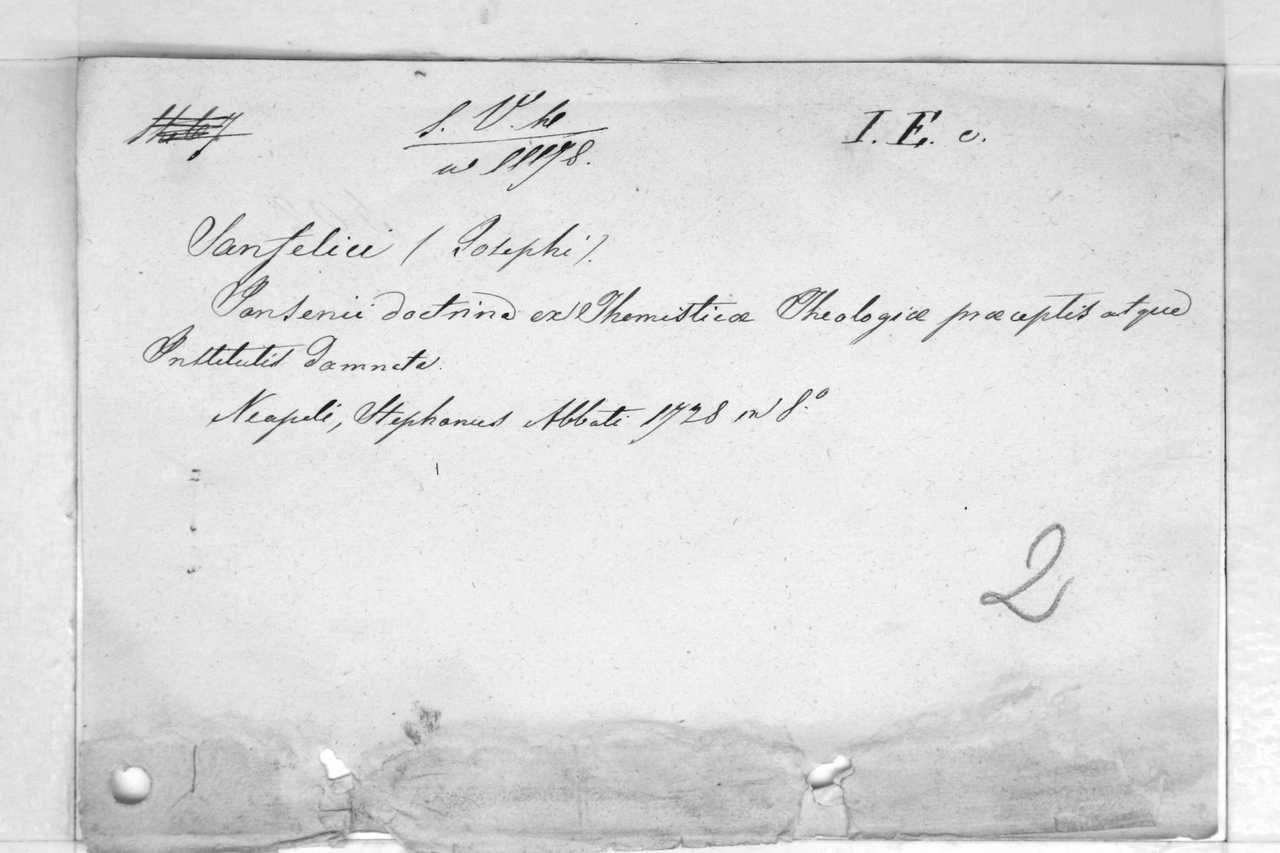 I. E. c.
Sanfelicii (Josephi).
Jansenii doctrina ex Thomisticæ Theologiæ præceptis atque
Institutis damnata.
Neapoli, Stephanus Abbati 1728 in 8.º
2